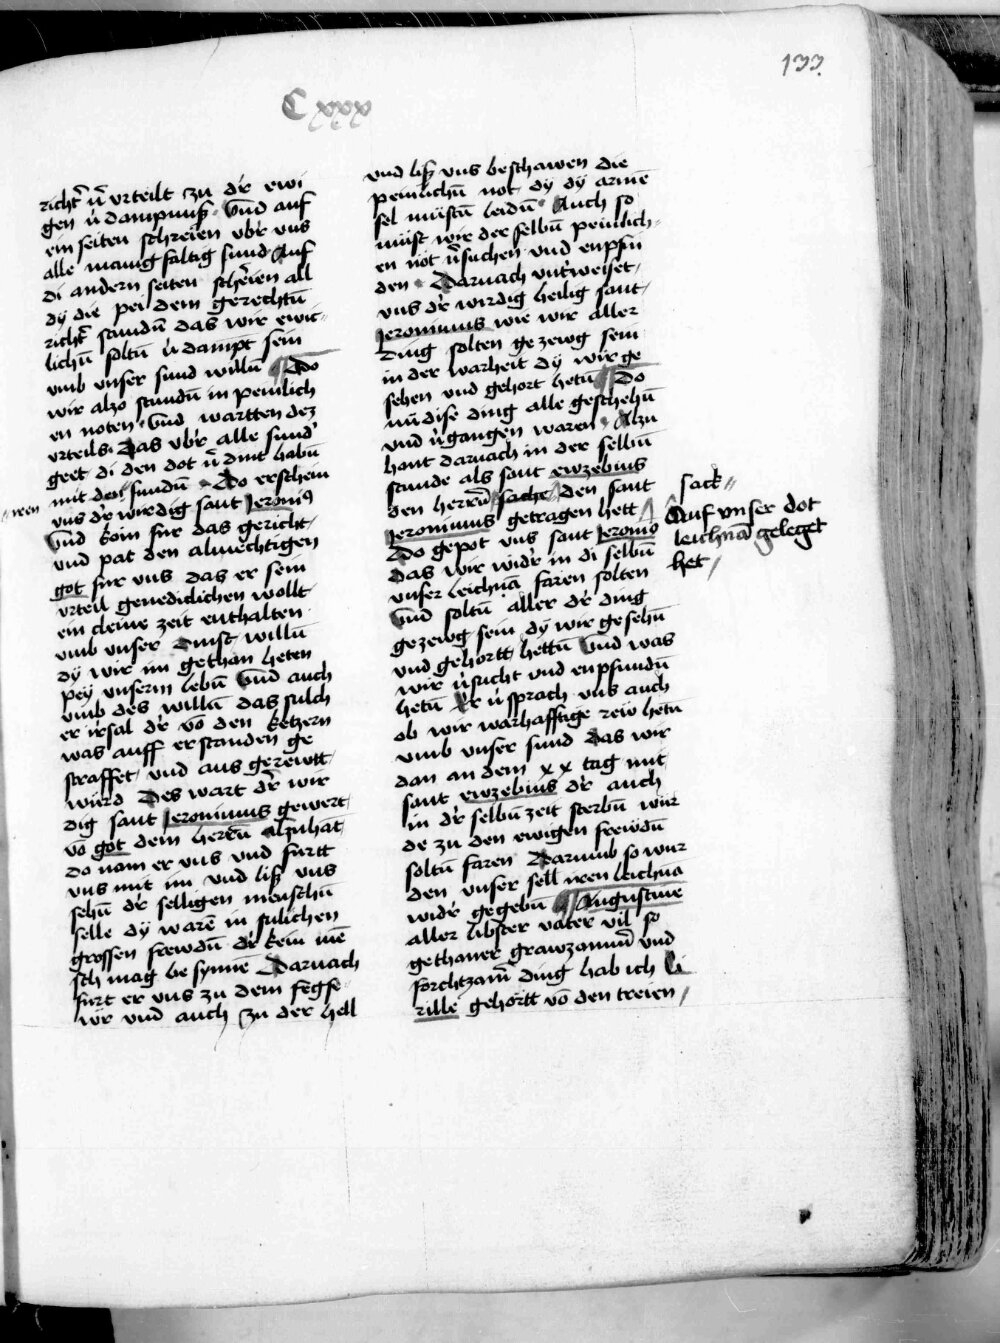 133
Cxxx
richt̃ ṽ vrteilt zu d'r ewi
gen v̇dampnuß · Vnd auf
ein seiten schreien vbr vns
alle manigfaltig sund Auf
di andern seiten schreien all
dy die pei dem gerechtũ
richt̃ standũ das wir ewic
lichũ soltũ v̇dampt sein
vmb vnser sund willũ Do
wir alzo standũ in peinlich
en noten · Vnd wartten dez
vrteils Das vbr alle sund'
geet di den dot ṽdint habũ
mit den sundũ · Do erschein
vns d'r wirdig sant Jeronimꝰ
Vnd koin fur das gericht
vnd pat den almechtigen
got fur vns das er sein
vrteil genediclichen wollt
ein cleine zeit enthalten
vmb vnser dinst willũ
dy wir im gethan heten
pey vnserm lebũ Vnd auch
vmb des willũ das sulch
er irsal d'r võ den ketzern
was auff erstanden ge
straffet vnd aus gerewtt
würd Des wart d'r wir
dig sant Jeronimus gewert
võ got dem herrũ alzuhãt
do nam er vns vnd furtt
vns mit im vnd liß vns
sehũ d'r selligen menschũ
selle dy warẽ in sulichen
grossen frewdũ d'r kein mẽ
sch mag besynnẽ Darnach
furt er vns zu dem fegfe
wr vnd auch zu der hell
vnd liß vns beschawen die
peinlichũ not dy dy armẽ
sel müstũ leidũ · Auch so
müst wir der selbũ peinlich
en not ṽsuchen vnd enpfin
den · Darnach vnt'weiset
vns d'r wirdig heilig sant
Jeronimus wie wir aller
ding solten gezewg sein
in der warheit dy wir ge
sehen vnd gehort hetũ Do
nũ dise ding alle geschehũ
vnd v̇gangen waren · Alzu
hant darnach in der selbũ
stunde als sant ewzebius
den herrũ sache den sant
Jeronimus getragen hett
Do gepot vns sant Jeronio
das wir wid'r in di selbũ
vnser leichnã faren solten
Vnd soltũ aller d'r ding
gezewg sein dy wir gesehũ
vnd gehortt hettũ Vnd was
wir v̇sucht vnd enpfundũ
hetũ Er v̇sprach vns auch
ob wir warhafftige rew hetũ
vmb vnser sund das wir
dan an dem xx tag mit
sant ewzebius d'r auch
in d'r selbũ zeit sterbũ wür
de zu den ewigen frewdũ
soltũ faren Darumb so wur
den vnser sell iren leichnã
wid'r gegebũ Augustine
aller libster vater vil so
gethaner grawzammũ vnd
forchtzam̃ ding hab ich Ci
rille gehortt võ den treien
sack
Auf vnser dot
leichnã geleget
het